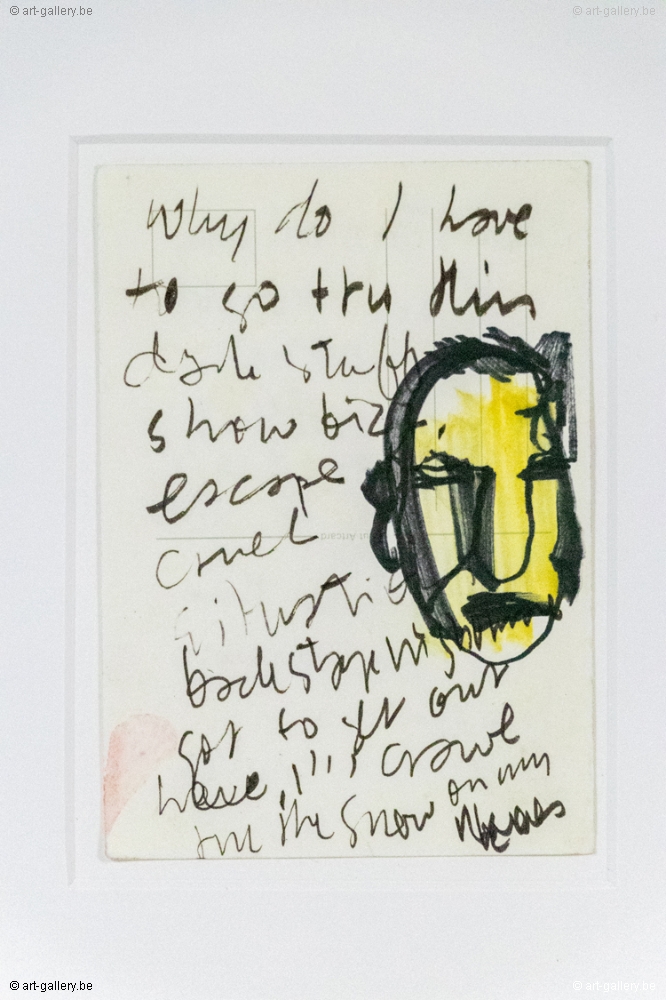 © art-gallery.be
© art-gallery.be
Why do I have
to go tru this
dark stuff
show biz
escape
cruel
situatio
backstage
got to get out
here, !!! crawl
tru the snow on my
© art-gallery.be
© art-gallery.be